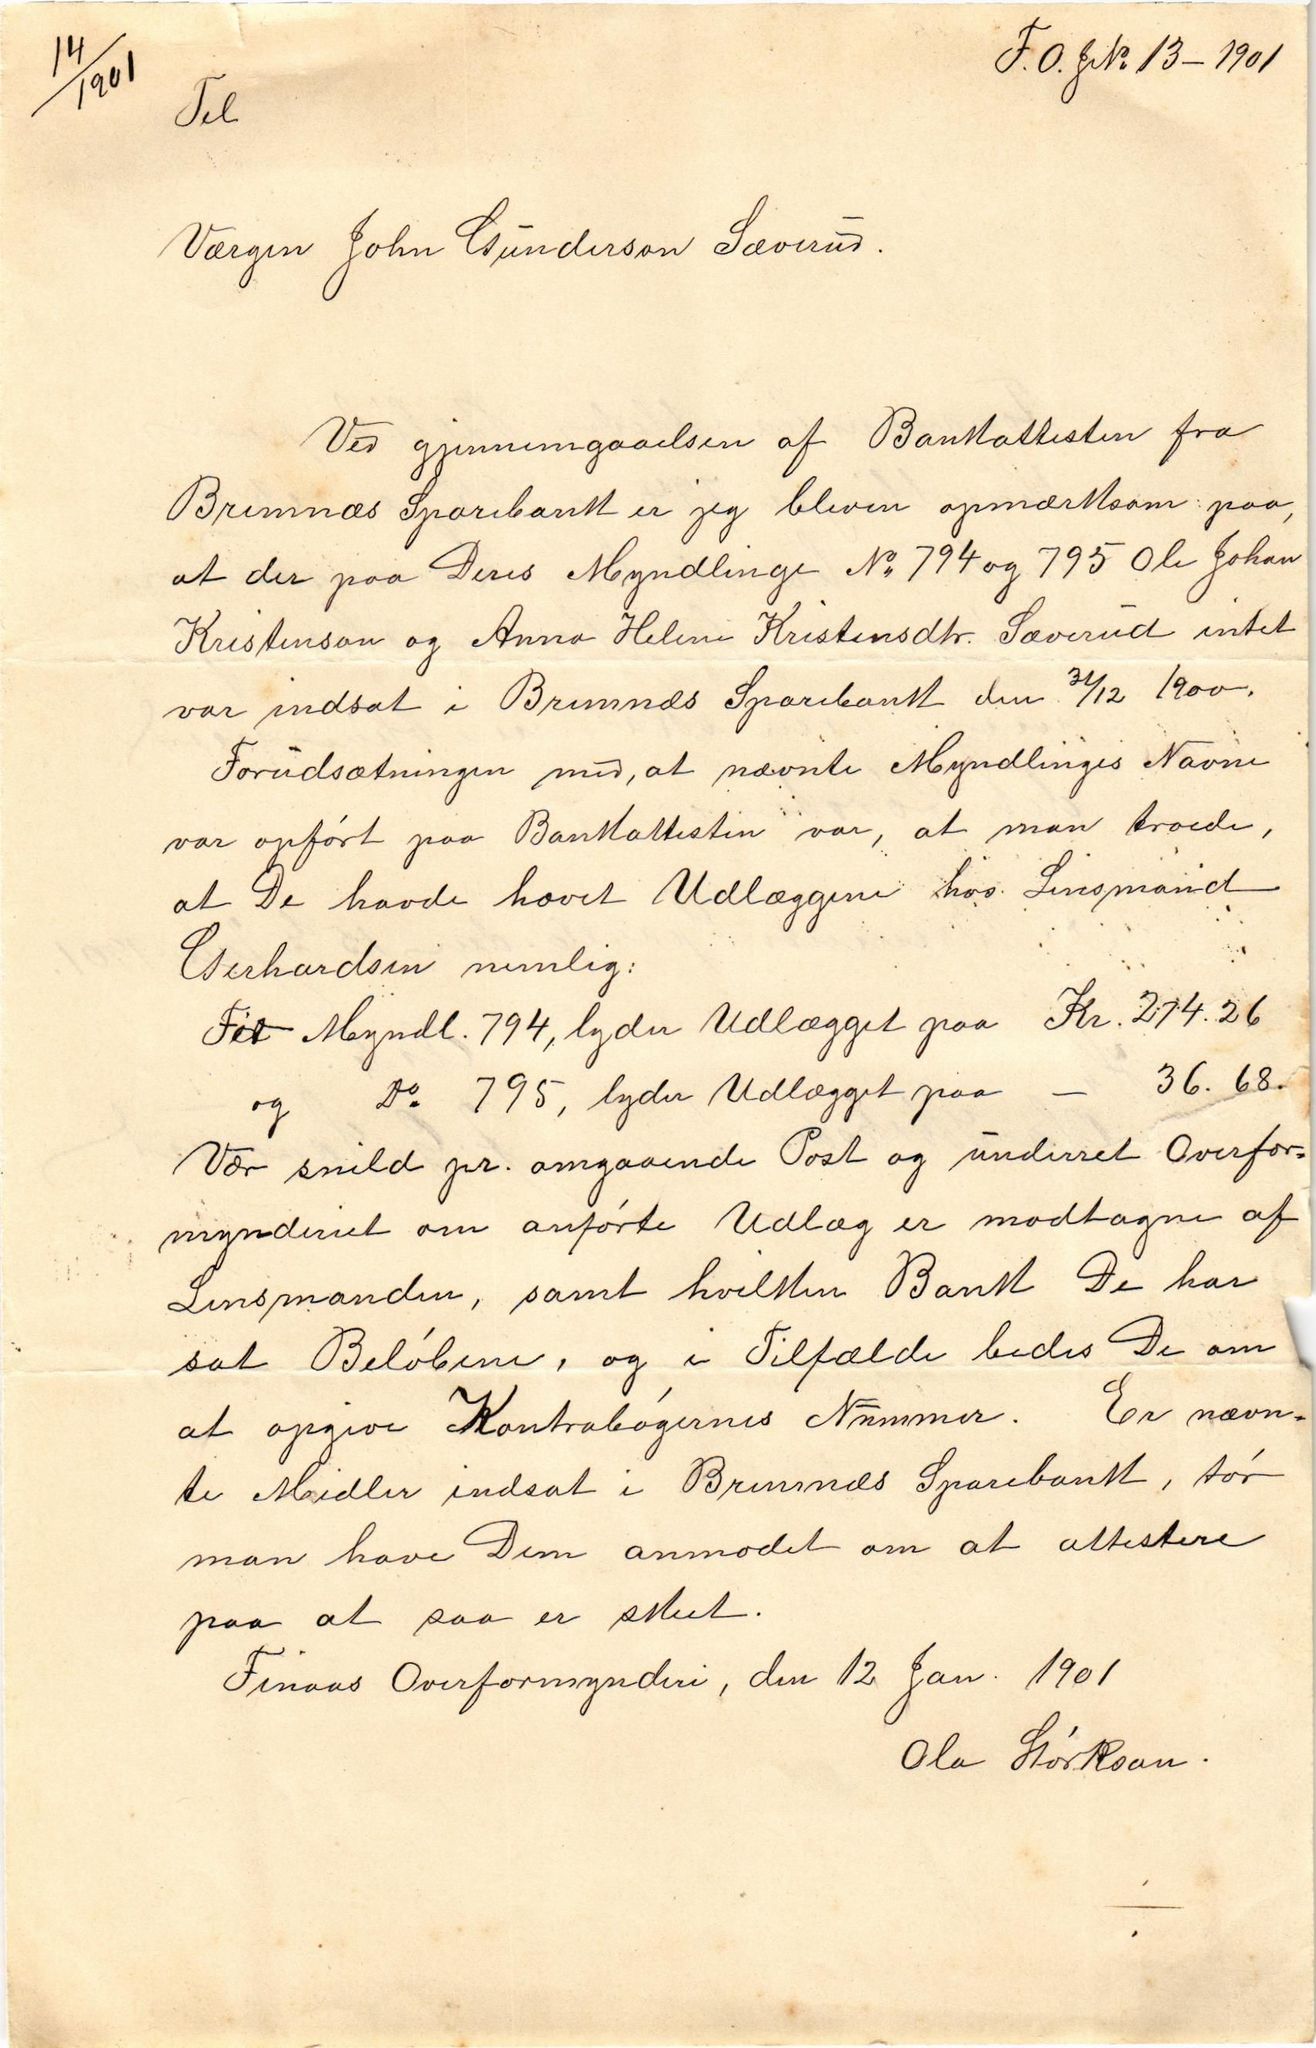 14/1901
F. O. JNo 13 – 1901
Til
Værgen John Gunderson Sæverud.
Ved gjennemgaaelsen af Bankattesten fra
Bremnæs Sparebank er jeg bleven opmærksom paa,
at der paa Deres Myndlinge No 794 og 795 Ole Johan
Kristenson og Anna Helene Kristensdtr. Sæverud intet
var indsat i Bremnæs Sparebank den 31/12 1900.
Forudsætningen med, at nævnte Myndlinges Navne
var opført paa Bankattesten var, at man troede,
at De havde hævet Udlæggene hos Lensmand
Gerhardsen nemlig:
For Myndl. 794, lyder Udlægget paa Kr. 274.26
og Do. 795, lyder Udlægget paa — 36.68.
Vær snild pr. omgaaende Post og underret Overfor=
mynderiet om anførte Udlæg er modtagne af
Lensmanden, samt hvilken Bank De har
sat Beløbene, og i Tilfælde bedes De om
at opgive Kontrabøgernes Nummer. Er nævn=
te Midler indsat i Bremnæs Sparebank, tør
man have Dem anmodet om at attestere
paa at saa er skeet.
Finaas Overformynderi, den 12 Jan. 1901
Ola Størkson.